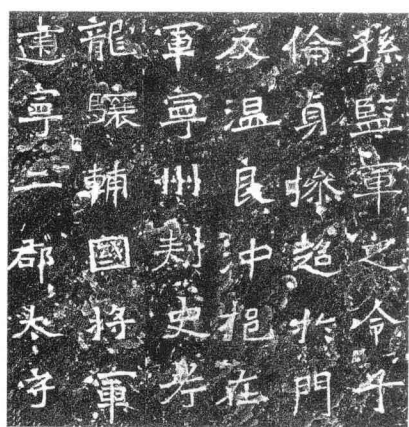 孫監軍之令子
倫貞操超於門
友温良沖挹在
軍寧州刺史考
龍驤輔國將軍
建寧二郡太守